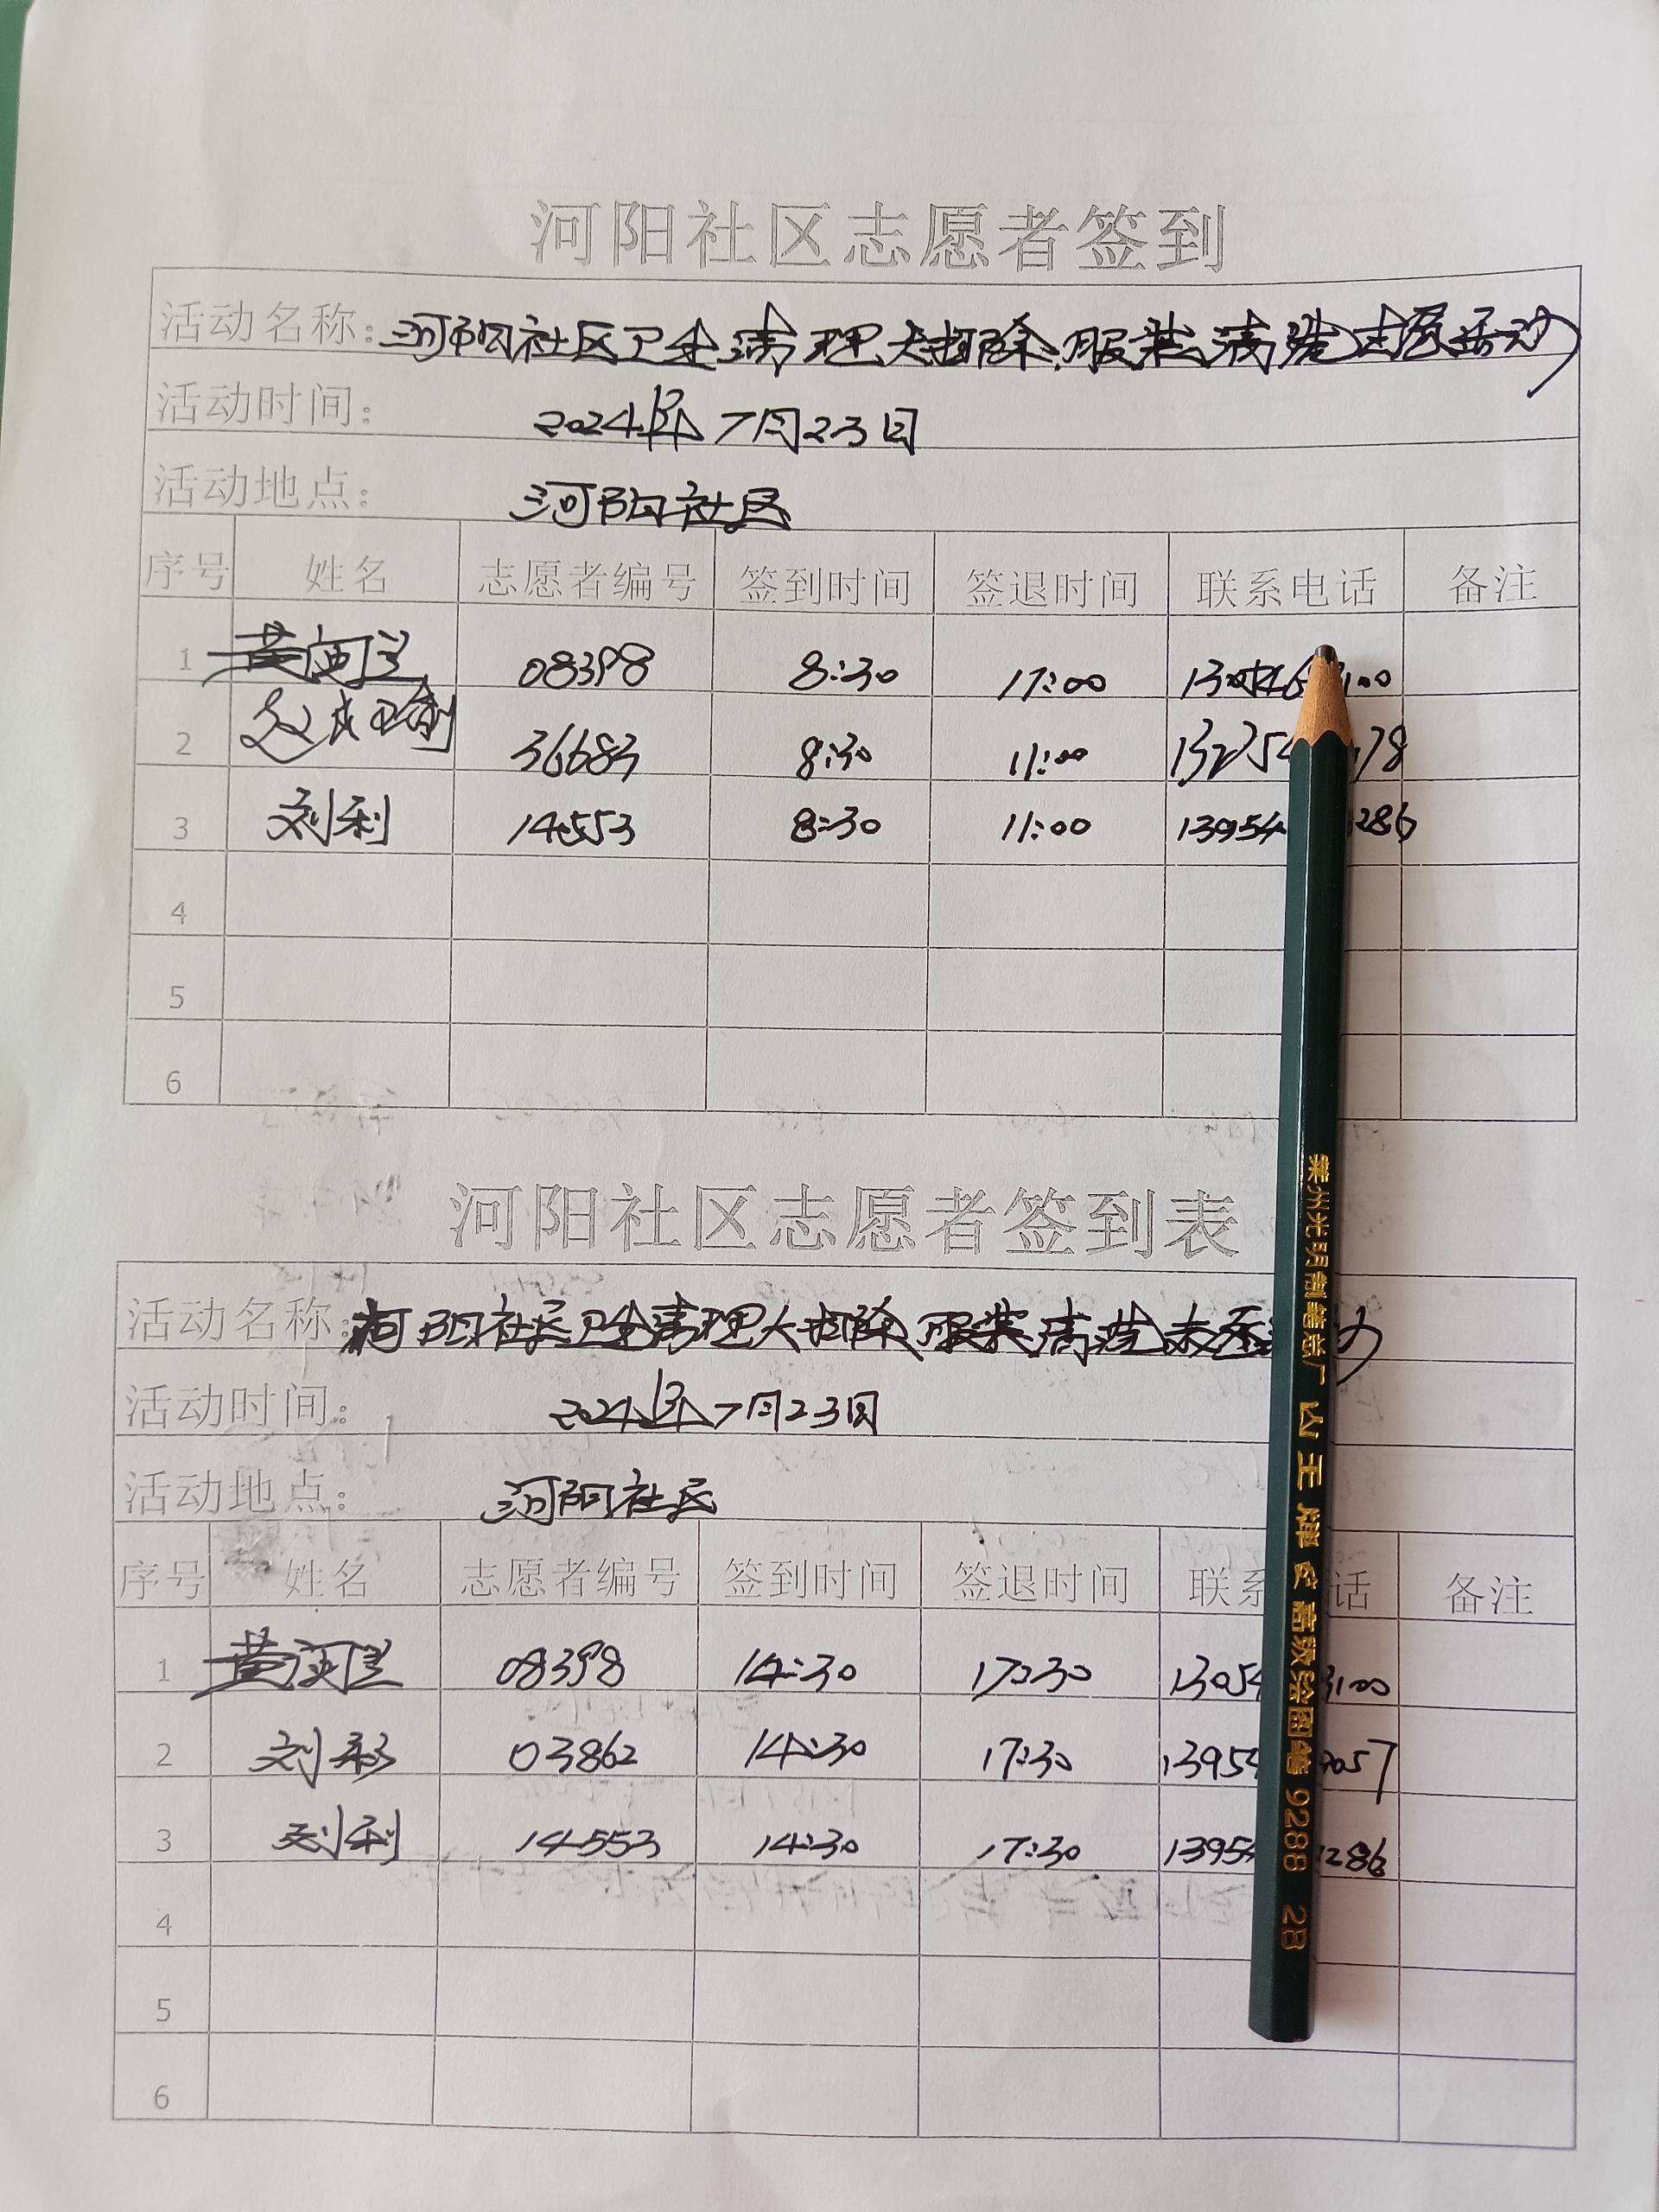 河阳社区志愿者签到
活动名称：河阳社区卫生清理大扫除、服装清洗志愿活动
活动时间： 2024年7月23日
活动地点： 河阳社区
序号 姓名 志愿者编号 签到时间 签退时间 联系电话 备注
1 08398 8:30 11:00
2 36683 8:30 11:00
3 刘利 14553 8:30 11:00 13954 286
4
5
6
河阳社区志愿者签到表
活动名称：河阳社区卫生清理大扫除、服装清洗志愿
活动时间： 2024年7月23日
活动地点： 河阳社区
序号 姓名 志愿者编号 签到时间 签退时间 联系 话 备注
1 08398 14:30 17:30 13054 3100
2 刘彩 03862 14:30 17:30 1395 057
3 刘利 14553 14:30 17:30 1395 286
4
5
6
莱州光明制笔总厂 山王牌 高级绘图笔 9288 2B